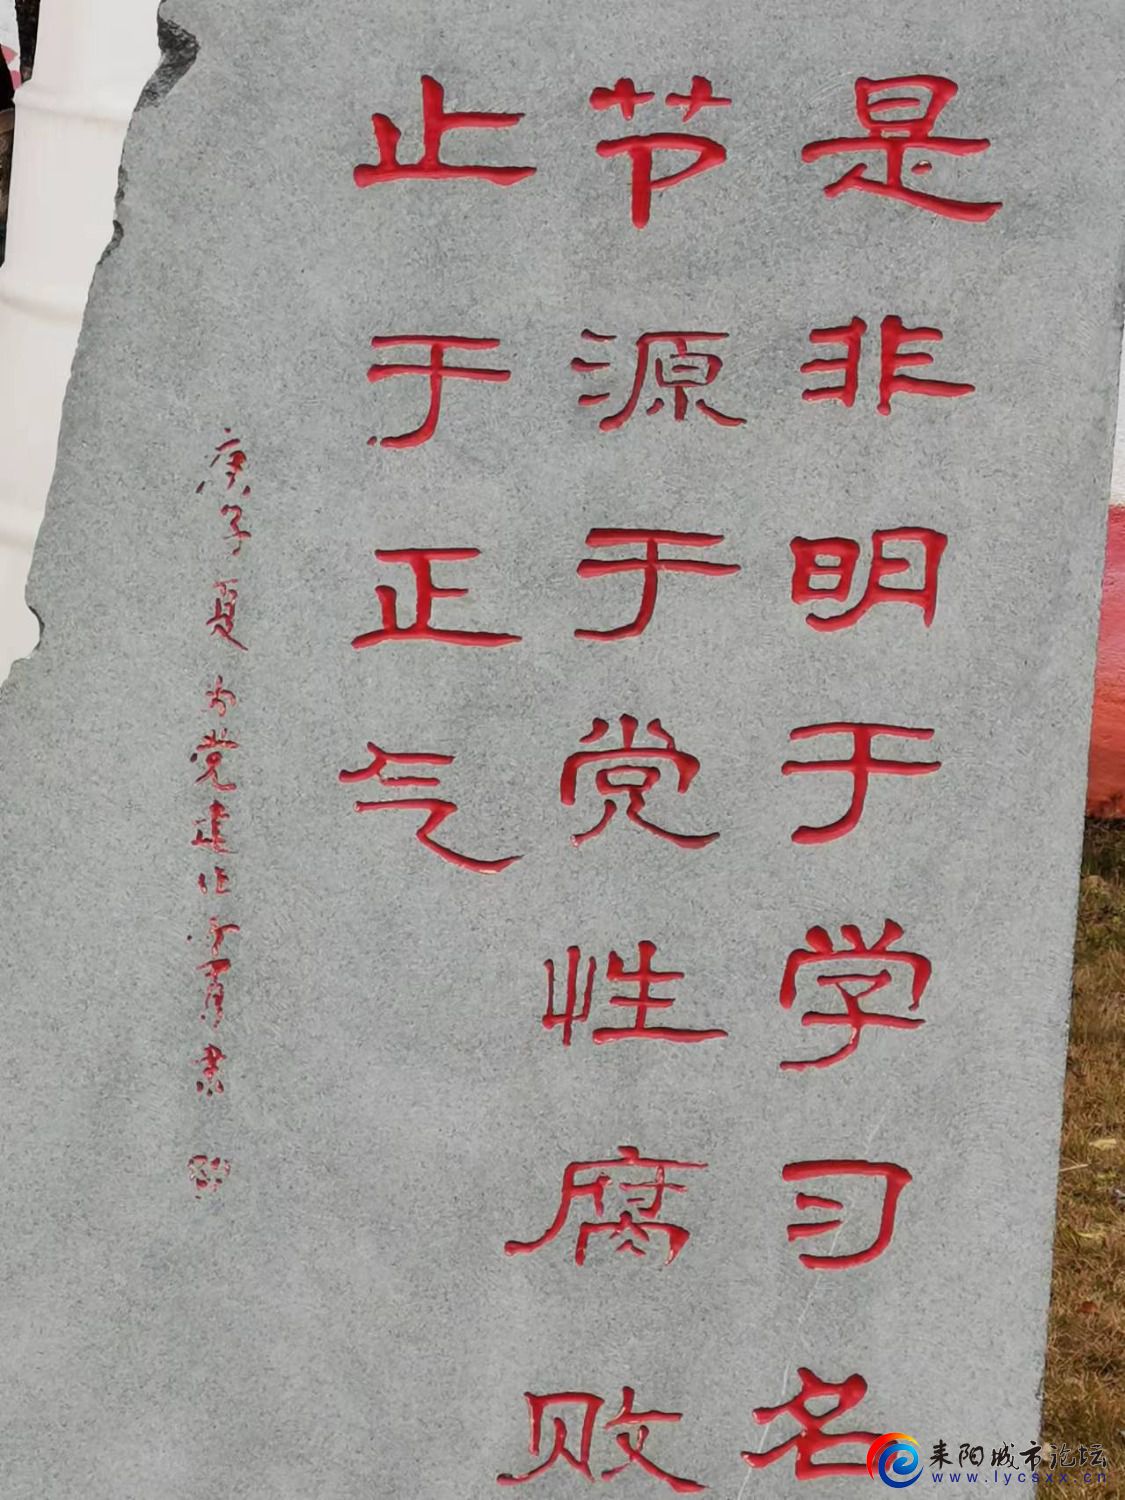 是非明于学习名
节源于党性腐败
止于正气
庚子夏为党建作
耒阳城市论坛
www.lycsxx.cn